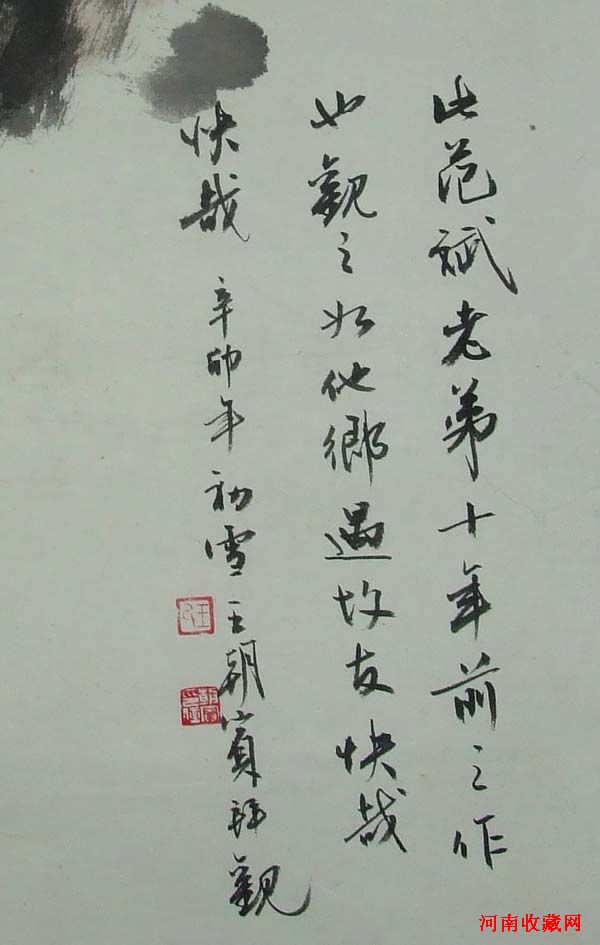 此范斌老弟十年前之作
也觀之如他鄉遇故友快哉
快哉 辛卯年初雪王朝賓拜觀
河南收藏网